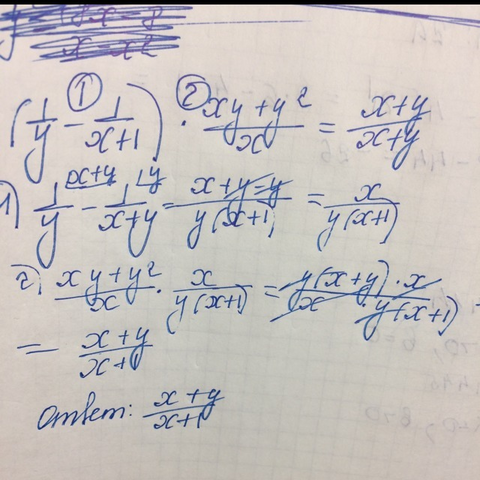 (1/y - 1/(x+1)) · (xy+y²)/x = (x+y)/(x+y)
1) 1/y - 1/(x+y) = (x+y-y)/(y(x+1)) = x/(y(x+1))
2) (xy+y²)/x · x/(y(x+1)) = (y(x+y)·x)/(x·y(x+1))
= (x+y)/(x+1)
Ответ: (x+y)/(x+1)